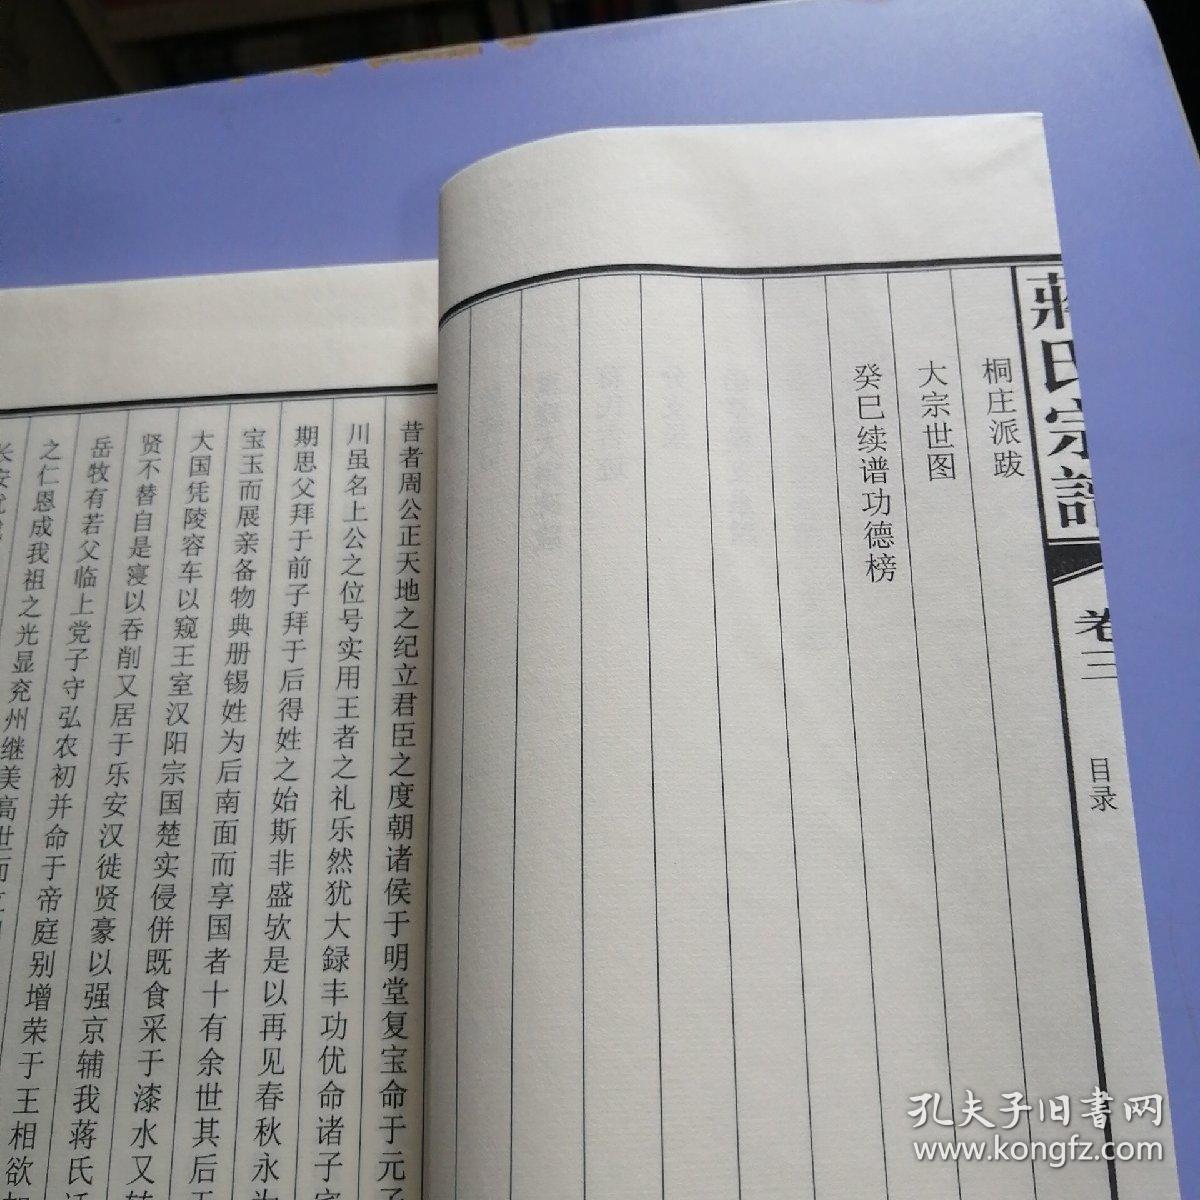 蔣氏宗譜
卷三
目录
桐庄派跋
大宗世图
癸巳续谱功德榜
昔者周公正天地之纪立君臣之度朝诸侯于明堂复宝命于元子
川虽名上公之位号实用王者之礼乐然犹大録丰功优命诸子
期思父拜于前子拜于后得姓之始斯非盛欤是以再见春秋永为
宝玉而展亲备物典册锡姓为后南面而享国者十有余世其后
大国凭陵容车以窥王室汉阳宗国楚实侵併既食采于漆水又
贤不替自是寝以吞削又居于乐安汉徙贤豪以强京辅我蒋氏
岳牧有若父临上党子守弘农初并命于帝庭别增荣于王相欲
之仁恩成我祖之光显兖州继美高世而立
长安
孔夫子旧书网
www.kongfz.com